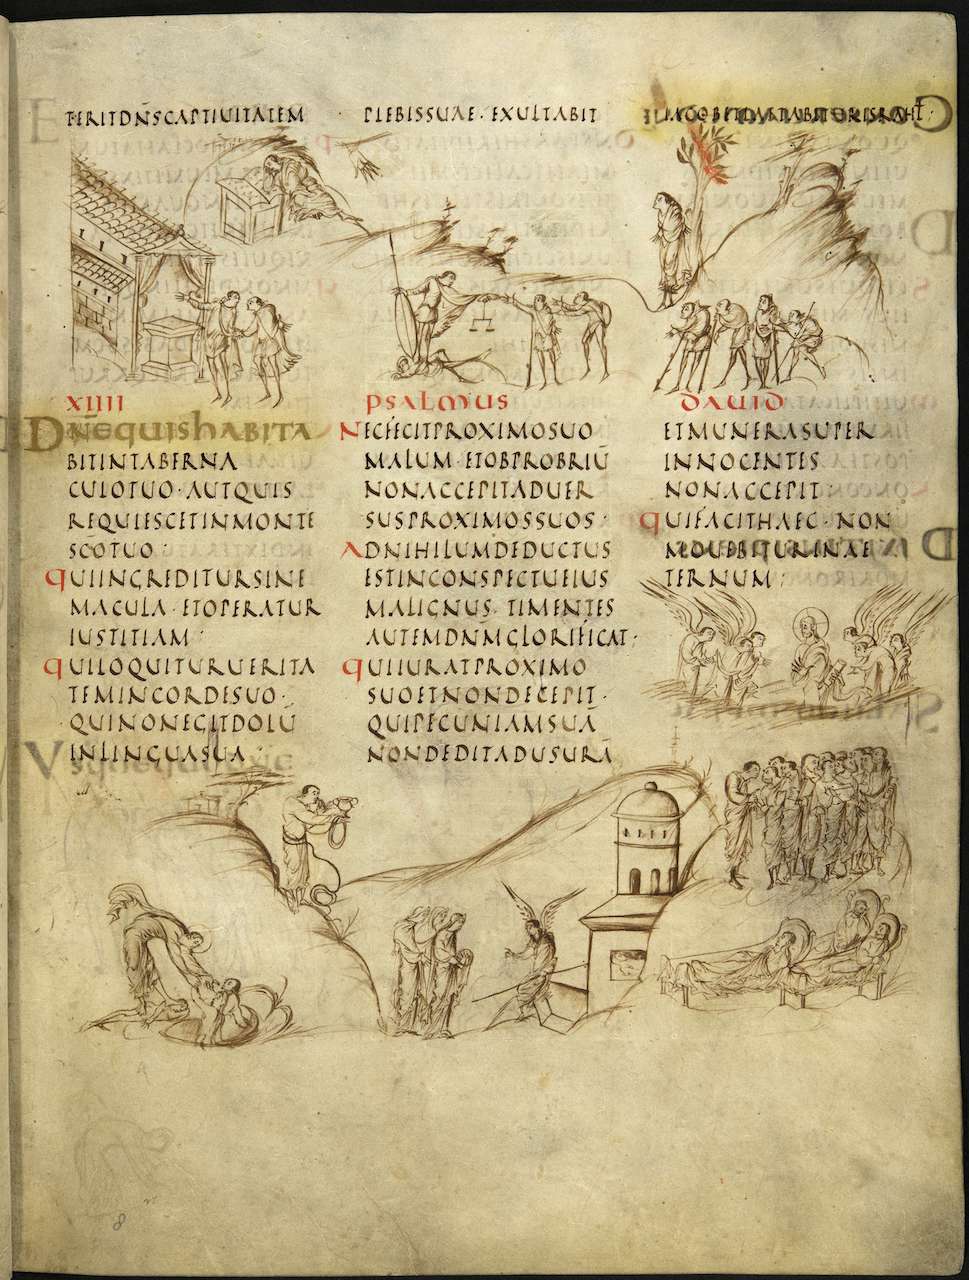 TERITDN̄SCAPTIUITATEM PLEBISSUAE · EXULTABIT IACOBETLAETABITURISRAHL̄ ·
XIIII PSALMUS DAUID
DN̄EQUISHABITA
BITINTABERNA
CULOTUO · AUTQUIS
REQUIESCETINMONTE
SCŌTUO ·
QUIINGREDITURSINE
MACULA · ETOPERATUR
IUSTITIAM ·
QUILOQUITURUERITA
TEMINCORDESUO ·
QUINONEGITDOLŪ
INLINGUASUA ·
NECFECITPROXIMOSUO
MALUM · ETOBPROBRIŪ
NONACCEPITADUER
SUSPROXIMOSSUOS ·
ADNIHILUMDEDUCTUS
ESTINCONSPECTUEIUS
MALIGNUS · TIMENTES
AUTEMDN̄MGLORIFICAT ·
QUIIURATPROXIMO
SUOETNONDECEPIT ·
QUIPECUNIAMSUĀ
NONDEDITADUSURĀ
ETMUNERASUPER
INNOCENTES
NONACCEPIT ·
QUIFACITHAEC · NON
MOUEBITURINAE
TERNUM ;
8